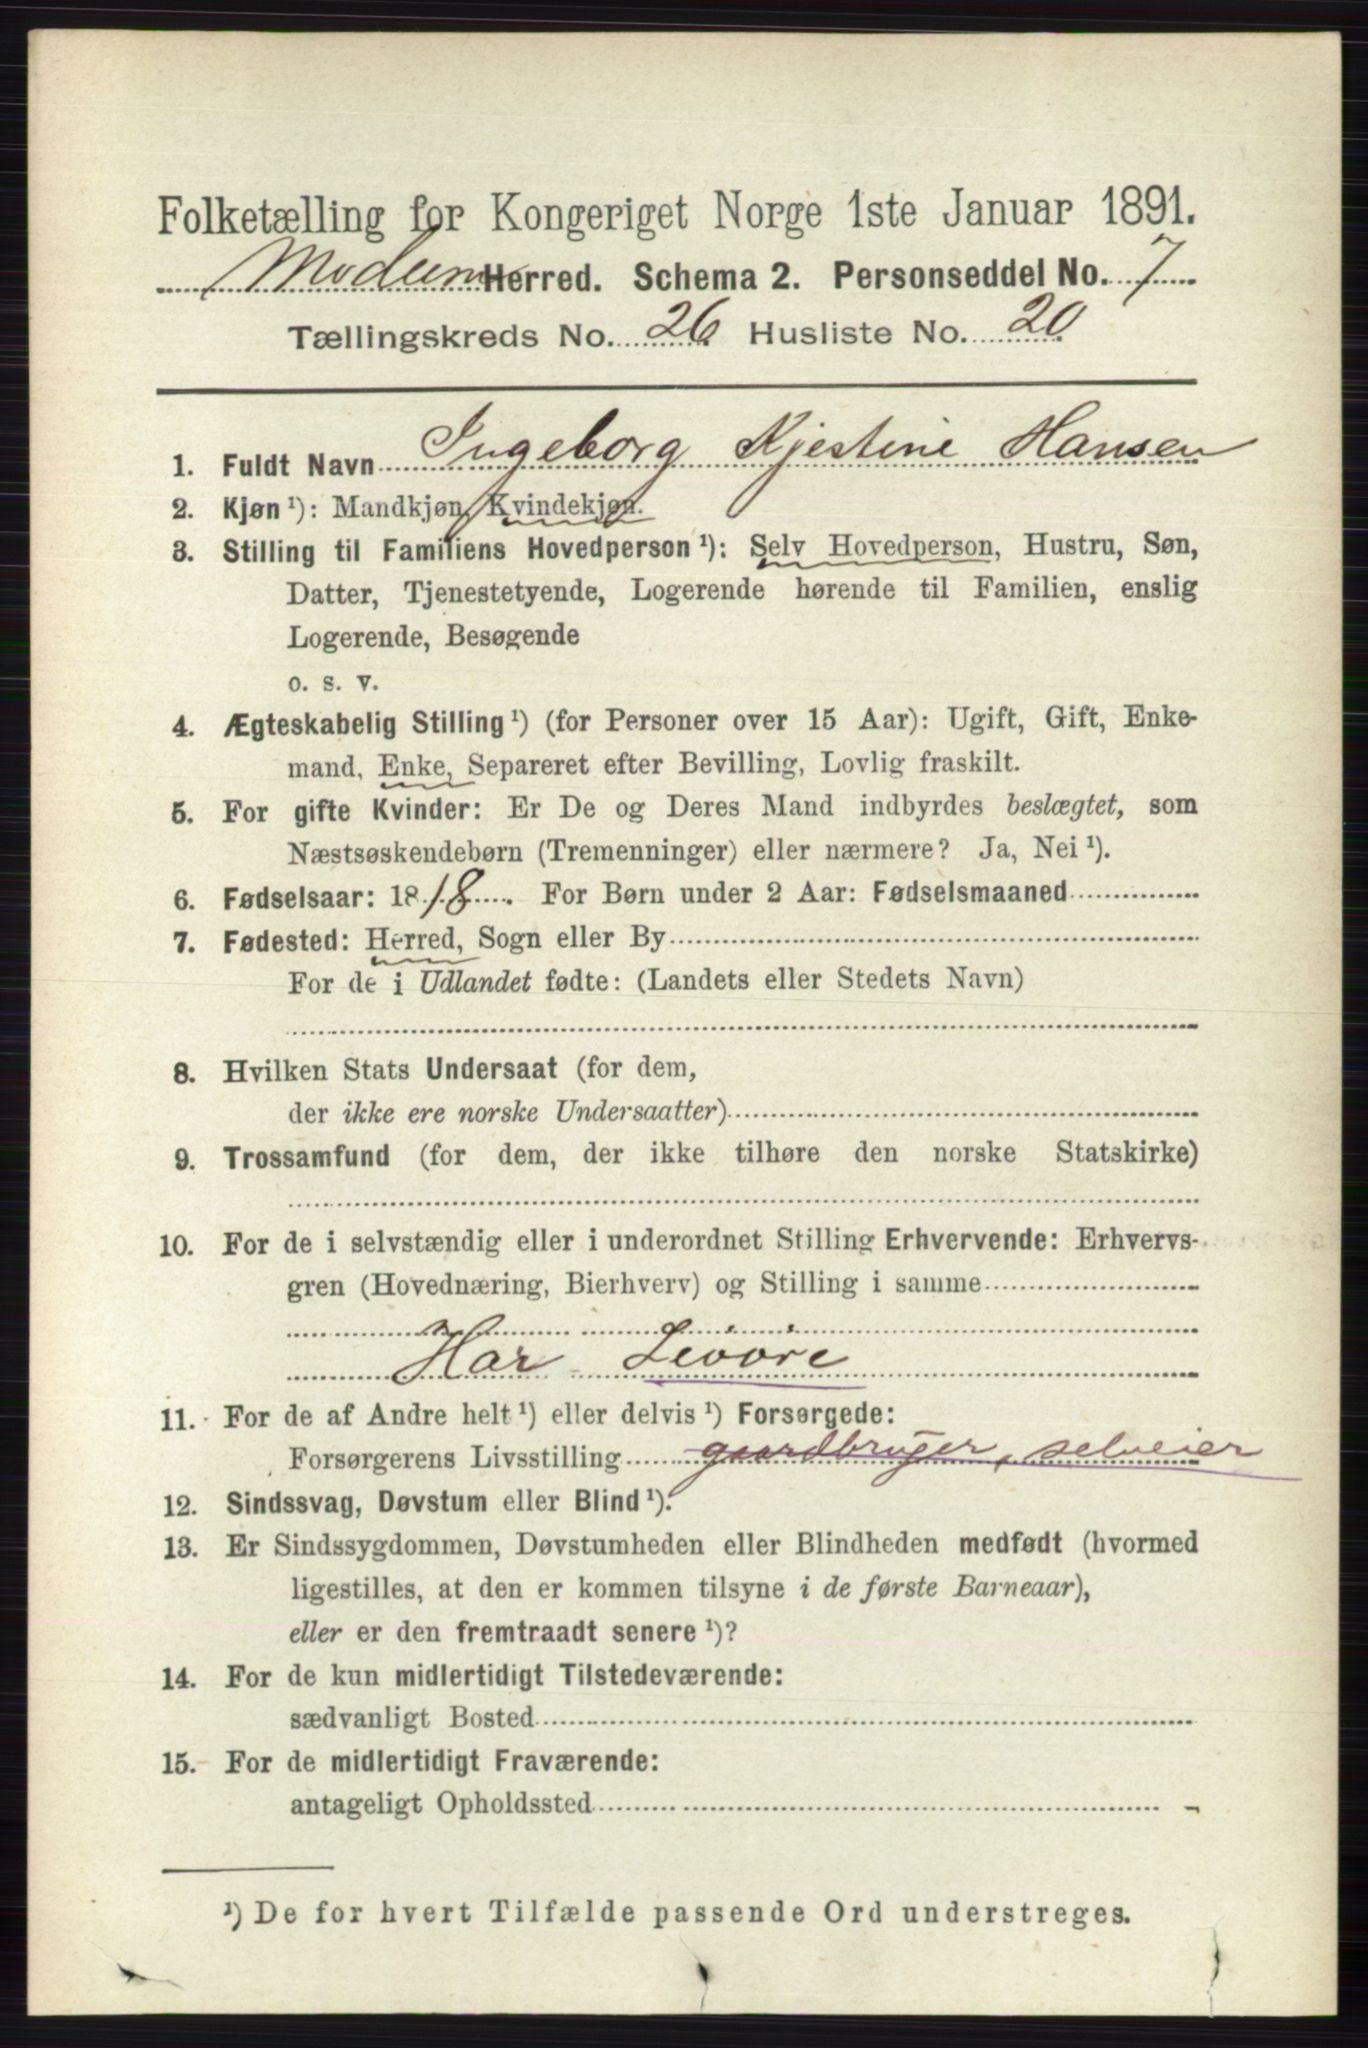 Folketælling for Kongeriget Norge 1ste Januar 1891.
Modum Herred. Schema 2. Personseddel No. 7
Tællingskreds No. 26 Husliste No. 20
1. Fuldt Navn Ingeborg Kjestine Hansen
2. Kjøn ¹): Mandkjøn, Kvindekjøn.
3. Stilling til Familiens Hovedperson ¹): Selv Hovedperson, Hustru, Søn,
Datter, Tjenestetyende, Logerende hørende til Familien, enslig
Logerende, Besøgende
o. s. v.
4. Ægteskabelig Stilling ¹) (for Personer over 15 Aar): Ugift, Gift, Enke-
mand, Enke, Separeret efter Bevilling, Lovlig fraskilt.
5. For gifte Kvinder: Er De og Deres Mand indbyrdes beslægtet, som
Næstsøskendebørn (Tremenninger) eller nærmere? Ja, Nei ¹).
6. Fødselsaar: 1818. For Børn under 2 Aar: Fødselsmaaned
7. Fødested: Herred, Sogn eller By
For de i Udlandet fødte: (Landets eller Stedets Navn)
8. Hvilken Stats Undersaat (for dem,
der ikke ere norske Undersaatter)
9. Trossamfund (for dem, der ikke tilhøre den norske Statskirke)
10. For de i selvstændig eller i underordnet Stilling Erhvervende: Erhvervs-
gren (Hovednæring, Bierhverv) og Stilling i samme
Har Levøre
11. For de af Andre helt ¹) eller delvis ¹) Forsørgede:
Forsørgerens Livsstilling gaardbruger, selveier
12. Sindssvag, Døvstum eller Blind ¹).
13. Er Sindssygdommen, Døvstumheden eller Blindheden medfødt (hvormed
ligestilles, at den er kommen tilsyne i de første Barneaar),
eller er den fremtraadt senere ¹)?
14. For de kun midlertidigt Tilstedeværende:
sædvanligt Bosted
15. For de midlertidigt Fraværende:
antageligt Opholdssted
¹) De for hvert Tilfælde passende Ord understreges.